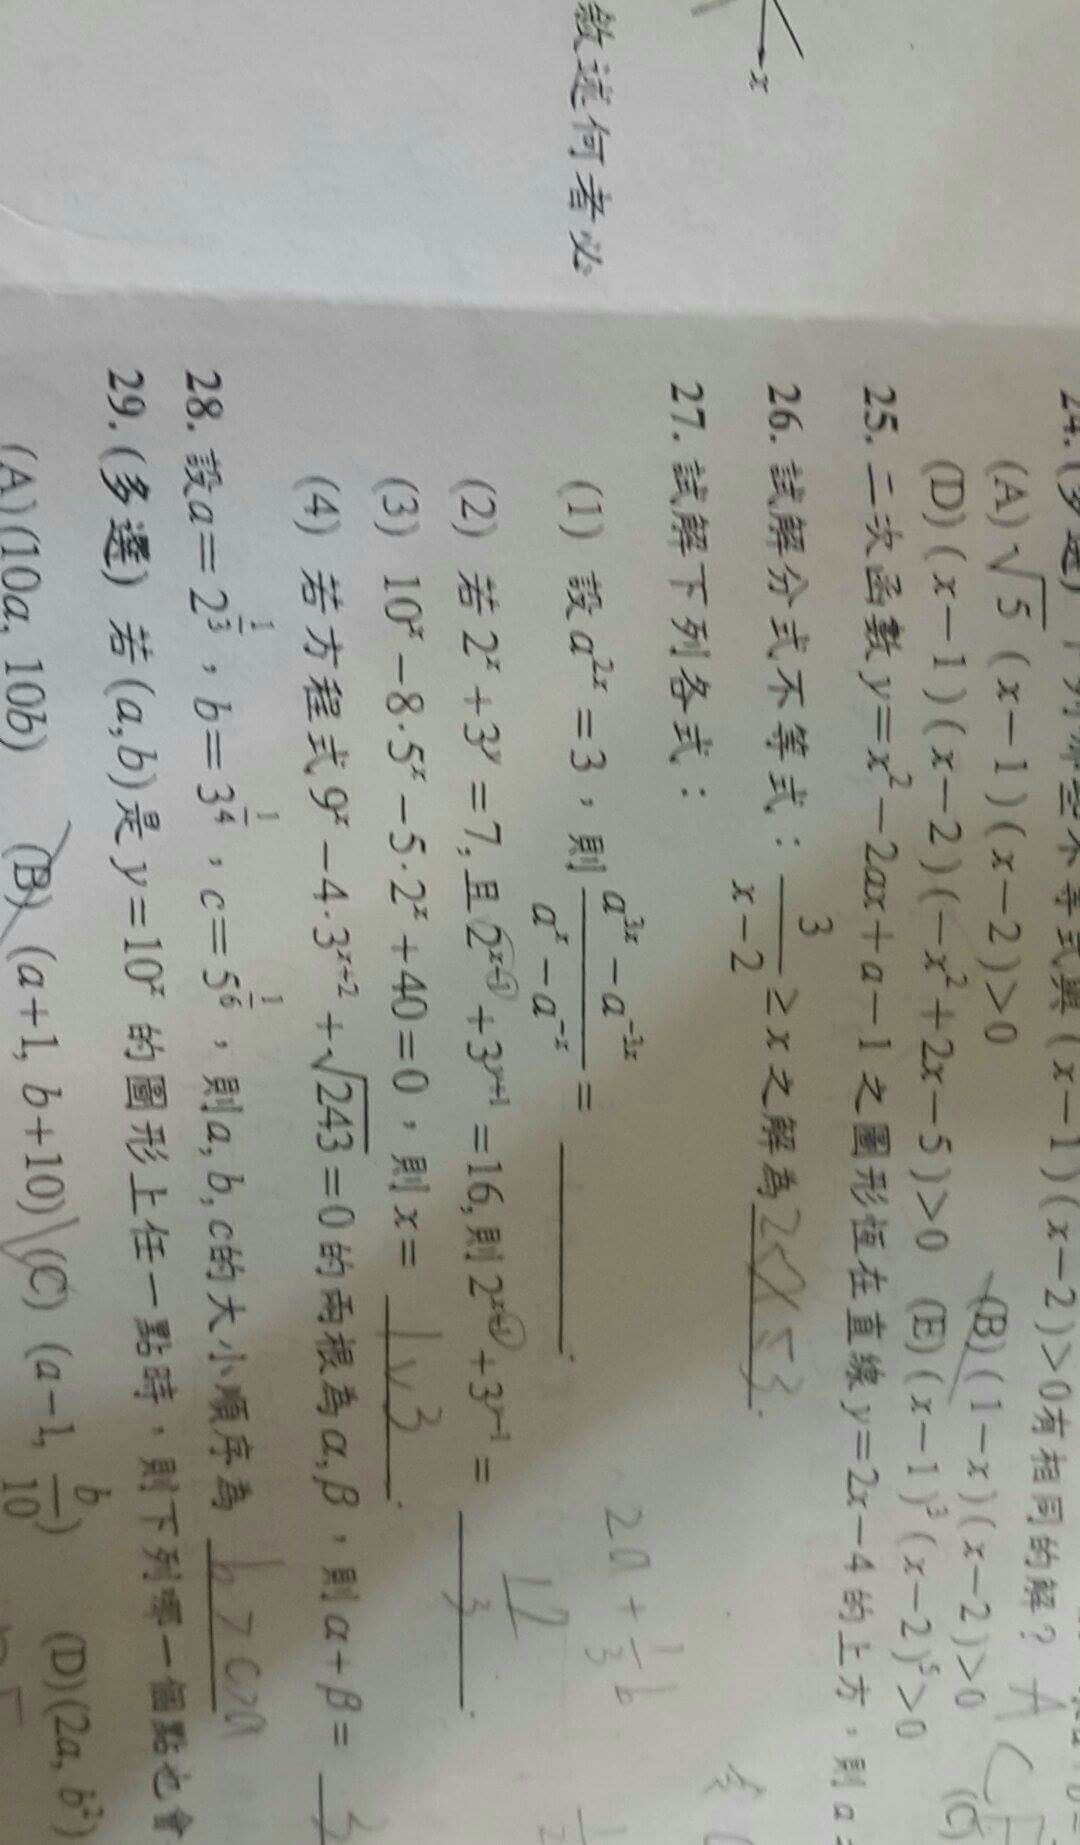 x
敘述何者必
(A) √5 (x−1)(x−2)>0
(B) (1−x)(x−2)>0
(C)
(D) (x−1)(x−2)(−x²+2x−5)>0 (E) (x−1)³(x−2)⁵>0
25. 二次函數 y=x²−2ax+a−1 之圖形恆在直線 y=2x−4 的上方，則 a
26. 試解分式不等式：3/(x−2) ≥ x 之解為 2<x≤3.
27. 試解下列各式：
(1) 設 a²ˣ=3，則 (a³ˣ−a⁻³ˣ)/(aˣ−a⁻ˣ) = ______.
2a+1/3 b
(2) 若 2ˣ+3ʸ=7,且 2ˣ⁺¹+3ʸ⁺¹=16,則 2ˣ⁺¹+3ʸ⁻¹= ______.
(3) 10ˣ−8·5ˣ−5·2ˣ+40=0，則 x= 1 v 3.
(4) 若方程式 9ˣ−4·3ˣ⁺²+√243=0 的兩根為 α,β，則 α+β=
28. 設 a=2^(1/3)，b=3^(1/4)，c=5^(1/6)，則 a,b,c 的大小順序為 b>c>a
29. (多選) 若 (a,b) 是 y=10ˣ 的圖形上任一點時，則下列哪一個點也會
(A) (10a, 10b) (B) (a+1, b+10) (C) (a−1, b/10) (D) (2a, b²)